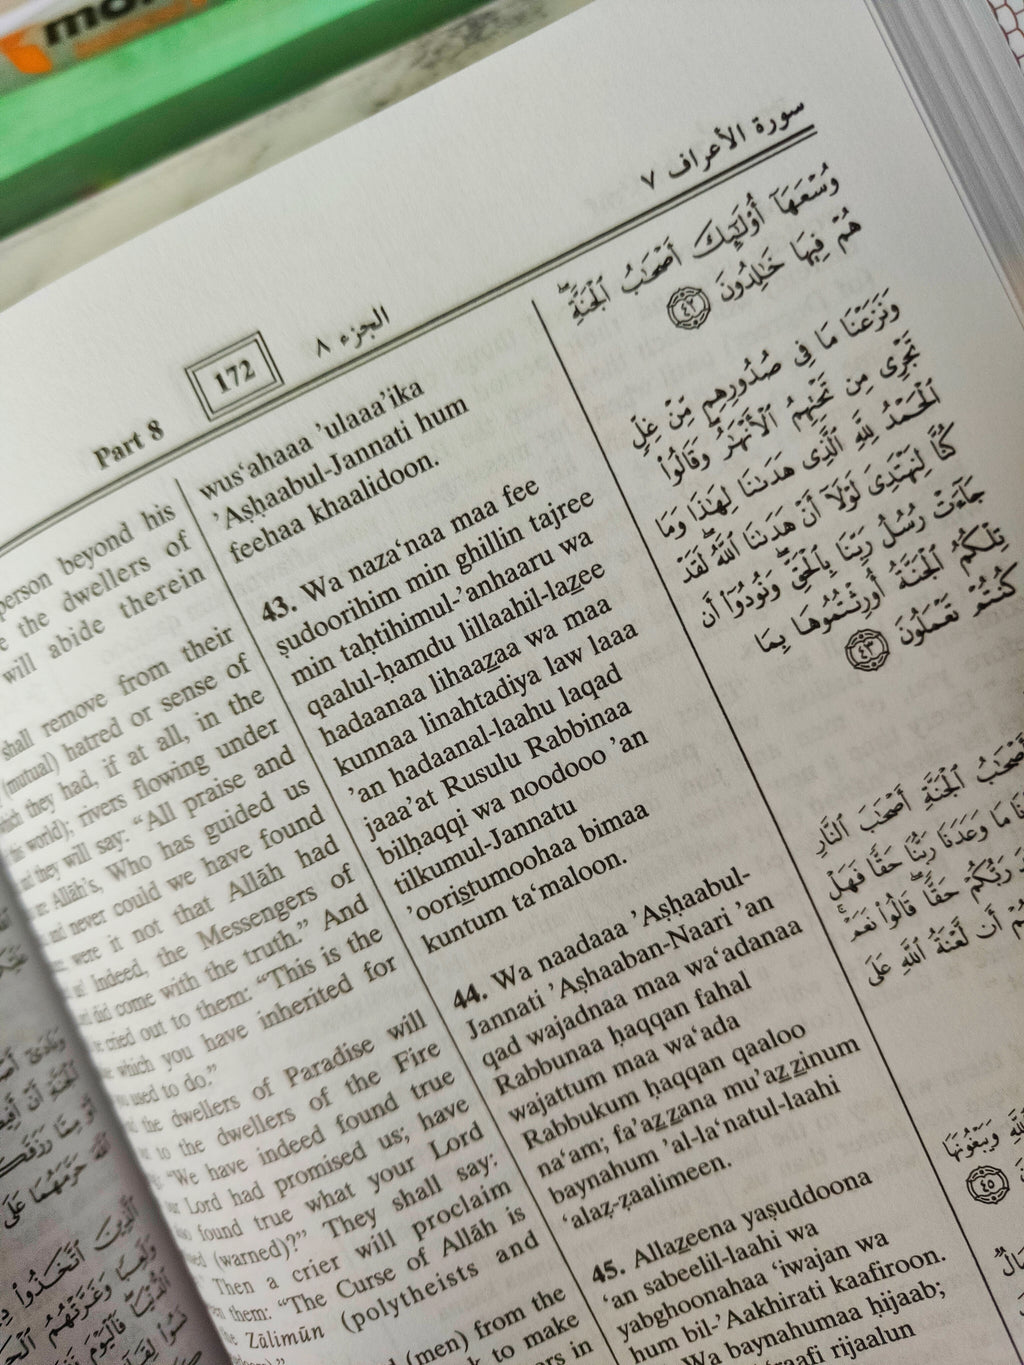 سورة الأعراف ٧
الجزء ٨
172
Part 8
person beyond his
the dwellers of
will abide therein
shall remove from their
(mutual) hatred or sense of
which they had, if at all, in the
this world); rivers flowing under
and they will say: “All praise and
Allāh’s, Who has guided us
and never could we have found
were it not that Allāh had
Indeed, the Messengers of
did come with the truth.” And
cried out to them: “This is the
which you have inherited for
used to do.”
the dwellers of Paradise will
to the dwellers of the Fire
“We have indeed found true
Lord had promised us; have
also found true what your Lord
(warned)?” They shall say:
Then a crier will proclaim
them: “The Curse of Allāh is
Zālimūn (polytheists and
(men) from the
to make
in
wus‘ahaaa ’ulaaa’ika
’Aṣḥaabul-Jannati hum
feehaa khaalidoon.
43. Wa naza‘naa maa fee
ṣudoorihim min ghillin tajree
min taḥtihimul-’anhaaru wa
qaalul-ḥamdu lillaahil-lazee
hadaanaa lihaazaa wa maa
kunnaa linahtadiya law laaa
’an hadaanal-laahu laqad
jaaa’at Rusulu Rabbinaa
bilḥaqqi wa noodooo ’an
tilkumul-Jannatu
’ooristumoohaa bimaa
kuntum ta‘maloon.
44. Wa naadaaa ’Aṣḥaabul-
Jannati ’Aṣḥaaban-Naari ’an
qad wajadnaa maa wa‘adanaa
Rabbunaa ḥaqqan fahal
wajattum maa wa‘ada
Rabbukum ḥaqqan qaaloo
na‘am; fa’azzana mu’azzinum
baynahum ’al-la‘natul-laahi
‘alaẓ-ẓaalimeen.
45. Allazeena yaṣuddoona
‘an sabeelil-laahi wa
yabghoonahaa ‘iwajan wa
hum bil-’Aakhirati kaafiroon.
Wa baynahumaa ḥijaab;
rijaalun
وُسْعَهَآ أُوْلَـٰٓئِكَ أَصْحَـٰبُ ٱلْجَنَّةِ ۖ
هُمْ فِيهَا خَـٰلِدُونَ ٤٢
وَنَزَعْنَا مَا فِى صُدُورِهِم مِّنْ غِلٍّ
تَجْرِى مِن تَحْتِهِمُ ٱلْأَنْهَـٰرُ ۖ وَقَالُوا۟
ٱلْحَمْدُ لِلَّهِ ٱلَّذِى هَدَىٰنَا لِهَـٰذَا وَمَا
كُنَّا لِنَهْتَدِىَ لَوْلَآ أَنْ هَدَىٰنَا ٱللَّهُ ۖ لَقَدْ
جَآءَتْ رُسُلُ رَبِّنَا بِٱلْحَقِّ ۖ وَنُودُوٓا۟ أَن
تِلْكُمُ ٱلْجَنَّةُ أُورِثْتُمُوهَا بِمَا
كُنتُمْ تَعْمَلُونَ ٤٣
أَصْحَـٰبُ ٱلْجَنَّةِ أَصْحَـٰبَ ٱلنَّارِ
مَا وَعَدَنَا رَبُّنَا حَقًّا فَهَلْ
رَبُّكُمْ حَقًّا ۖ قَالُوا۟ نَعَمْ ۚ
أَن لَّعْنَةُ ٱللَّهِ عَلَى
وَيَبْغُونَهَا
٤٥